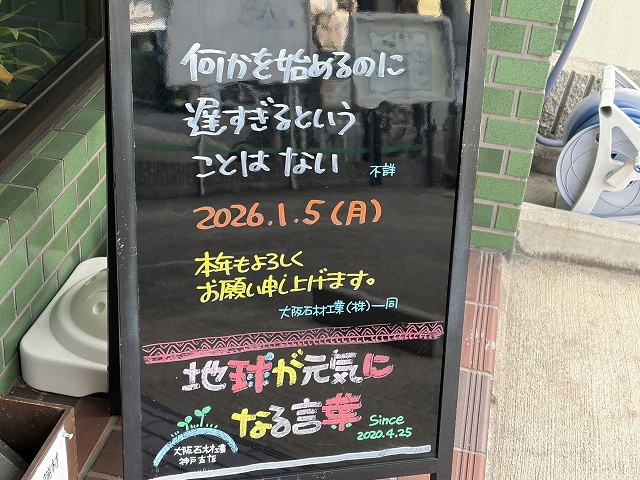 何かを始めるのに
遅すぎるという
ことは ない
不詳
2026.1.5(月)
本年もよろしく
お願い申し上げます。
大阪石材工業(株)一同
地球が元気に
なる言葉
Since
2020.4.25
大阪石材工業
神戸支店